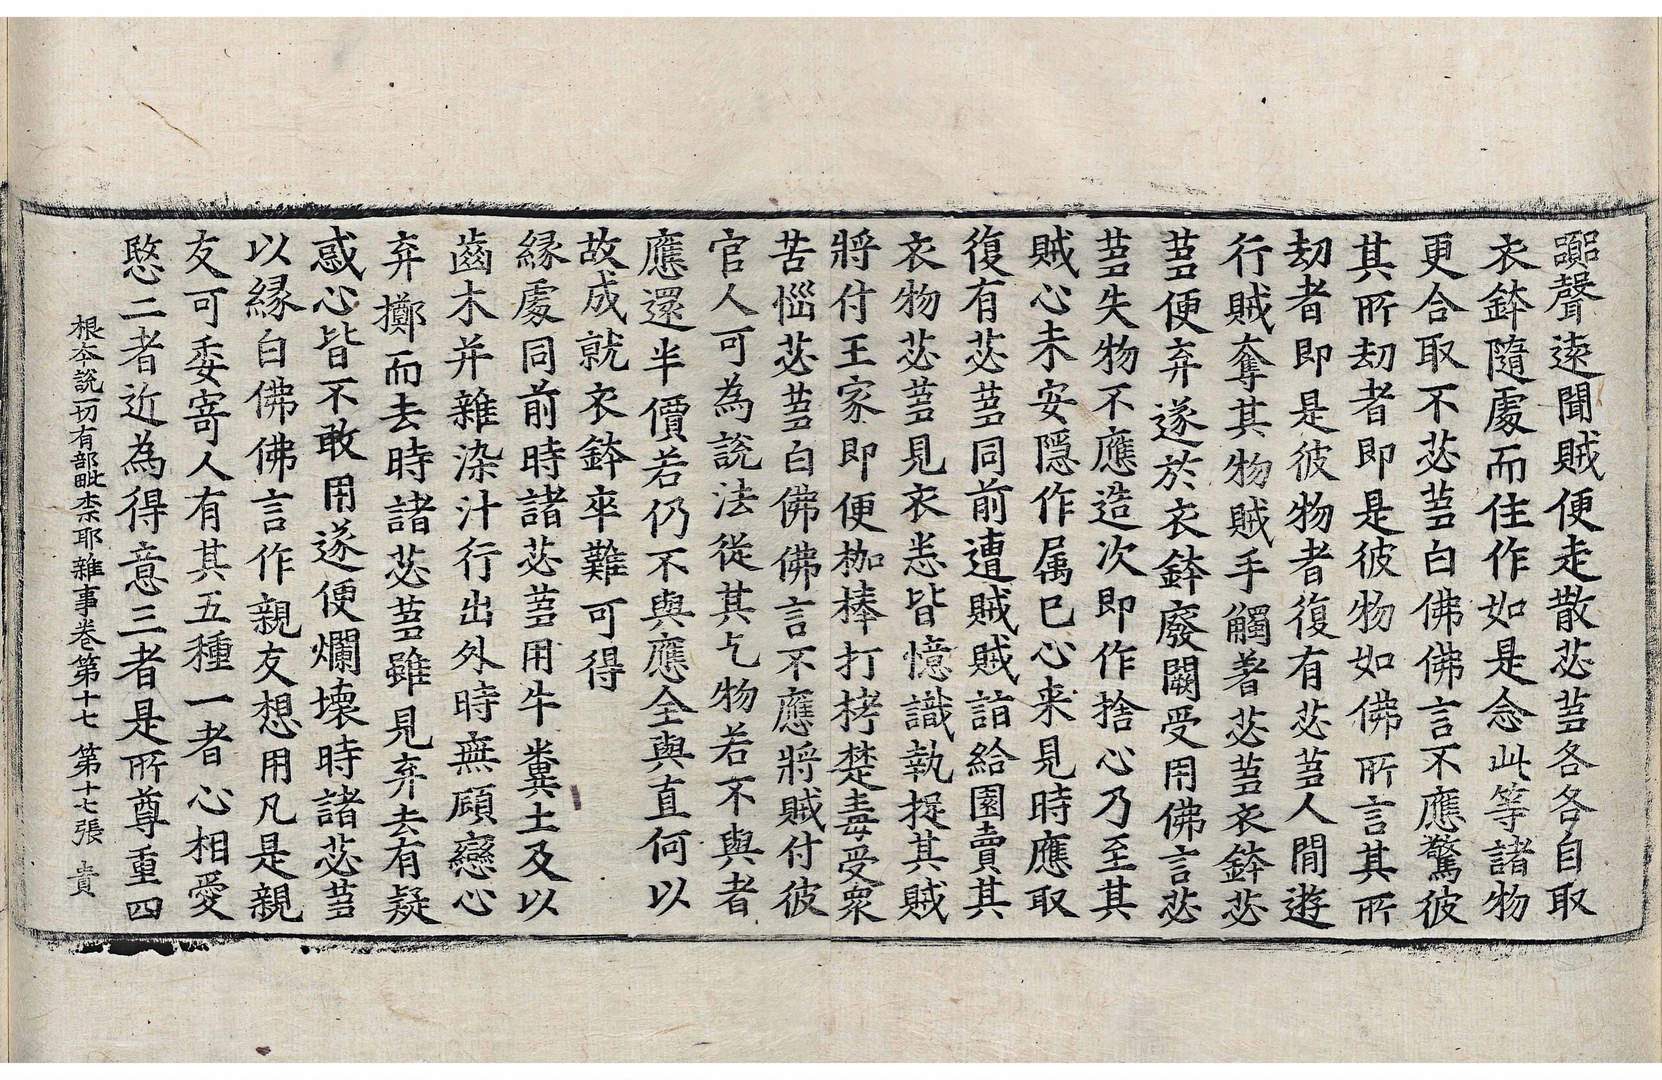 嚻聲遠聞賊便走散苾蒭各各自取
衣鉢隨處而住作如是念此等諸物
更合取不苾蒭白佛佛言不應驚彼
其所劫者即是彼物如佛所言其所
劫者即是彼物者復有苾蒭人閒遊
行賊奪其物賊手觸著苾蒭衣鉢苾
蒭便弃遂於衣鉢廢闕受用佛言苾
蒭失物不應造次即作捨心乃至其
賊心未安隱作属已心来見時應取
復有苾蒭同前遭賊賊詣給園賣其
衣物苾蒭見衣悉皆憶識執捉其賊
將付王家即便枷棒打拷楚毒受衆
苦惱苾蒭白佛佛言不應將賊付彼
官人可為說法從其乞物若不與者
應還半價若仍不與應全與直何以
故成就衣鉢卒難可得
緣處同前時諸苾蒭用牛糞土及以
齒木并雜染汁行出外時無顧戀心
弃擲而去時諸苾蒭雖見弃去有疑
惑心皆不敢用遂便爛壞時諸苾蒭
以緣白佛佛言作親友想用凡是親
友可委寄人有其五種一者心相愛
愍二者近為得意三者是所尊重四
根夲說一切有部毗柰耶雜事卷第十七 第十七張 貴